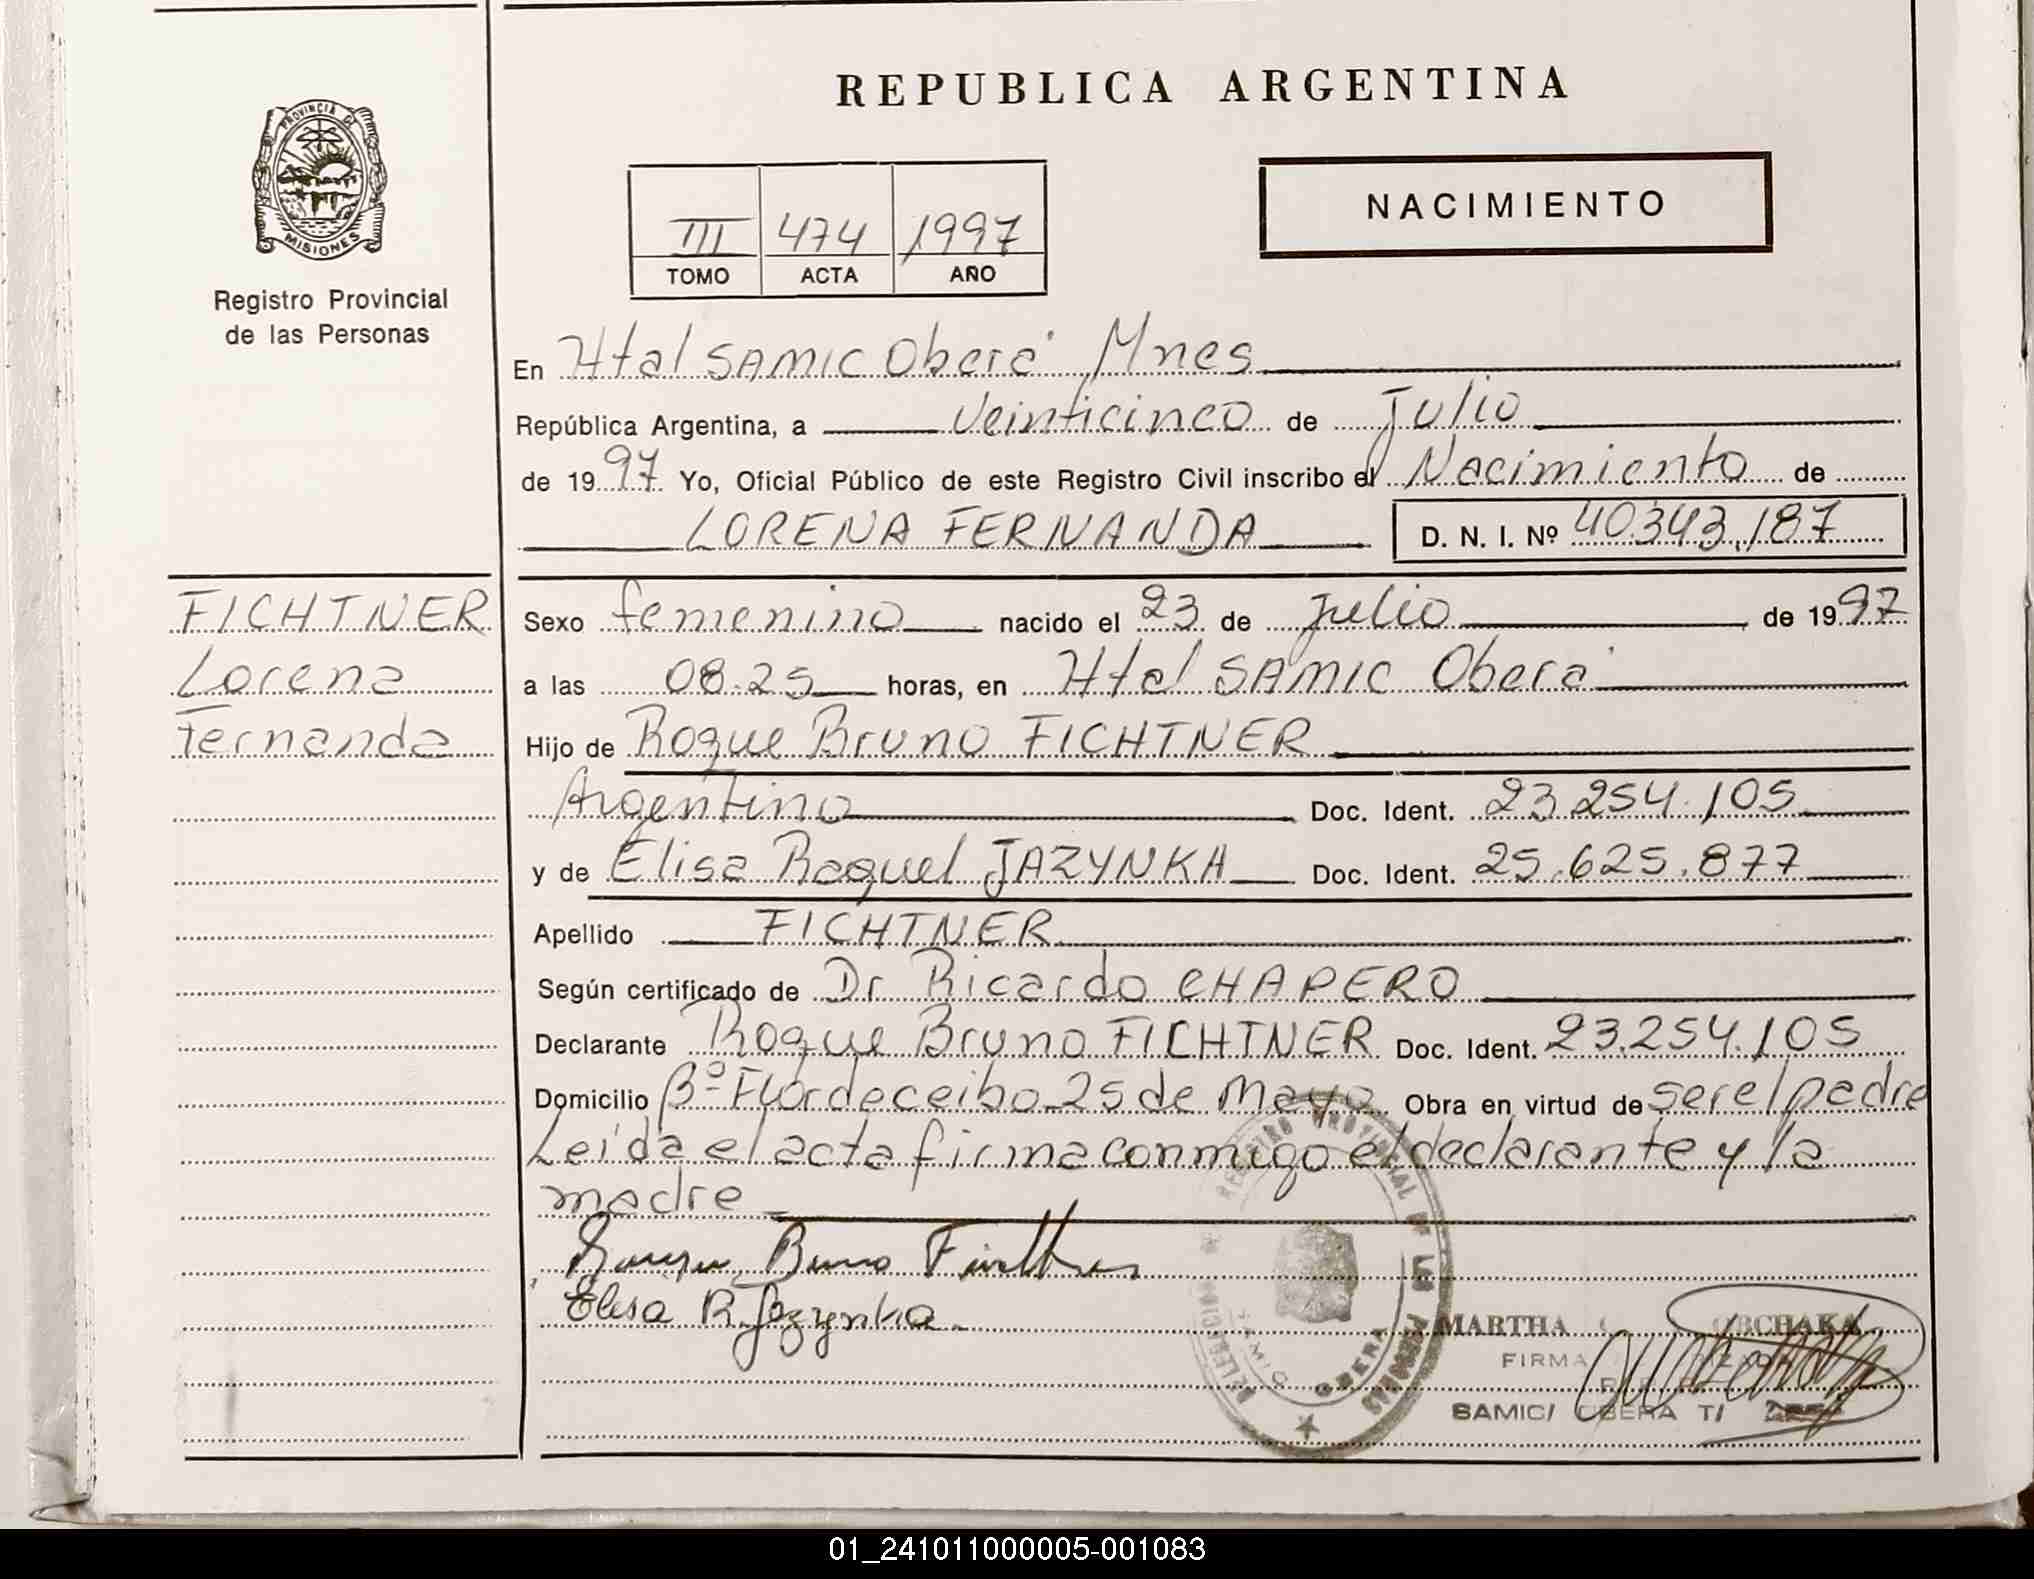 REPUBLICA ARGENTINA
PROVINCIA DE
MISIONES
Registro Provincial
de las Personas
III 474 1997
TOMO ACTA AÑO
NACIMIENTO
En Htal SAMIC Oberá Mnes
República Argentina, a Veinticinco de Julio
de 1997 Yo, Oficial Público de este Registro Civil inscribo el Nacimiento de
LORENA FERNANDA D. N. I. Nº 40.343.187
FICHTNER
Lorena
Fernanda
Sexo femenino nacido el 23 de Julio de 1997
a las 08.25 horas, en Htal SAMIC Oberá
Hijo de Roque Bruno FICHTNER
Argentino Doc. Ident. 23.254.105
y de Elisa Raquel JAZYNKA Doc. Ident. 25.625.877
Apellido FICHTNER
Según certificado de Dr Ricardo CHAPERO
Declarante Roque Bruno FICHTNER Doc. Ident. 23.254.105
Domicilio Bº Flor de ceibo 25 de Mayo Obra en virtud de ser el padre
Leída el acta firma conmigo el declarante y la
madre
Bruno
Elisa R. Jazynka
REGISTRO PROVINCIAL DE LAS PERSONAS
OBERA
MARTHA
FIRMA
SAMIC/ OBERA T/
01_241011000005-001083